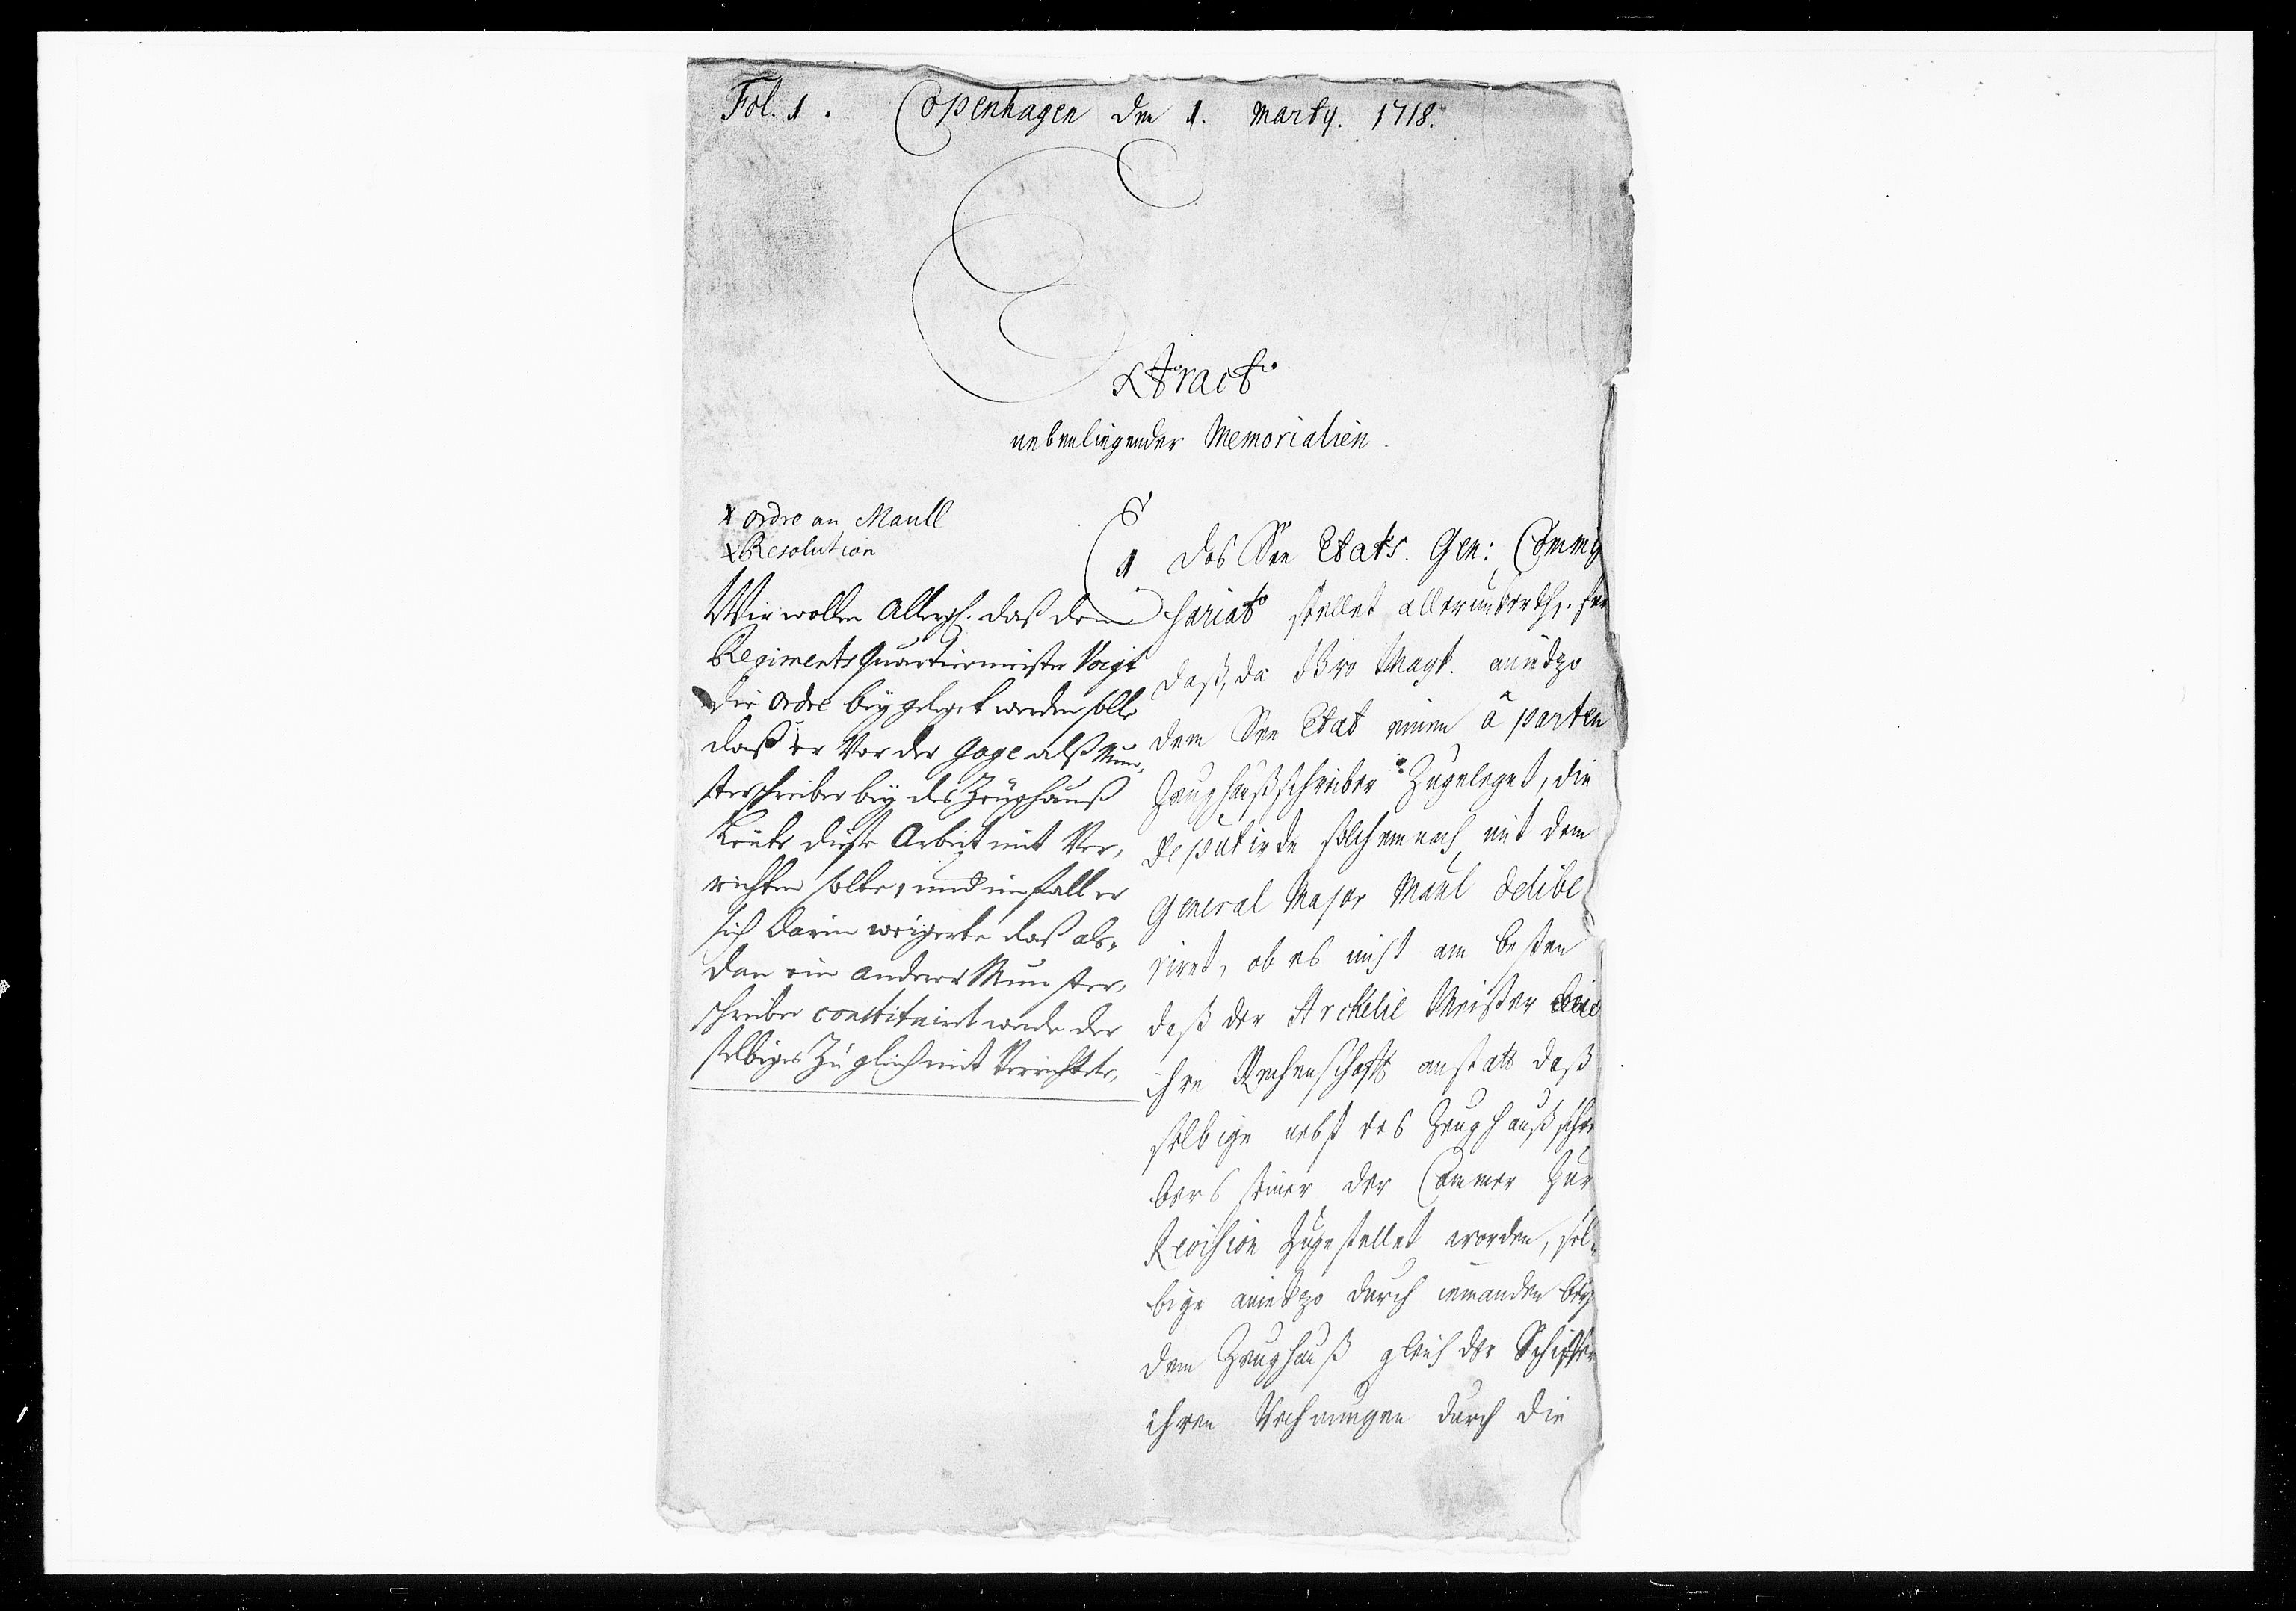 Fol. 1. Copenhagen den 1. Marty. 1718.
Extract
nebenliegender Memorialien.
x ordre an Maull
x Resolution
Wir wollen Allergh. daß dem
Regiments Quartiermeister Voigt
die ordre beygeleget werden solle
daß er Vor der Gage alß Mun,
sterschreiber bey des Zeughauß
Leute diese Arbeit mit Ver,
richten solte, und im fall er
sich darin weigerte daß als,
dan ein anderer Munster,
schreiber constituiret werde der
selbiges Zugleich mit Verrichtete,
1 Das See Etats. Gen: Commis
sariat stellet allerunterth. für
daß, da Ihro Mayt. anietzo
dem See Etat einen â parten
Zeughaußschreiber Zugeleget, die
Deputirde solchemnach mit dem
General Major Maul delibe
riret, ob es nicht am besten
daß der Arckelie Meister
ihre Rechenschafft anstatt daß
selbige nebst des Zeughauß schre
bers seiner der Cammer Zur
Revision Zugestellet worden, sel,
bige anietzo durch iemanden bey
dem Zeughauß gleich der Schiffer
ihren Rechnungen durch die